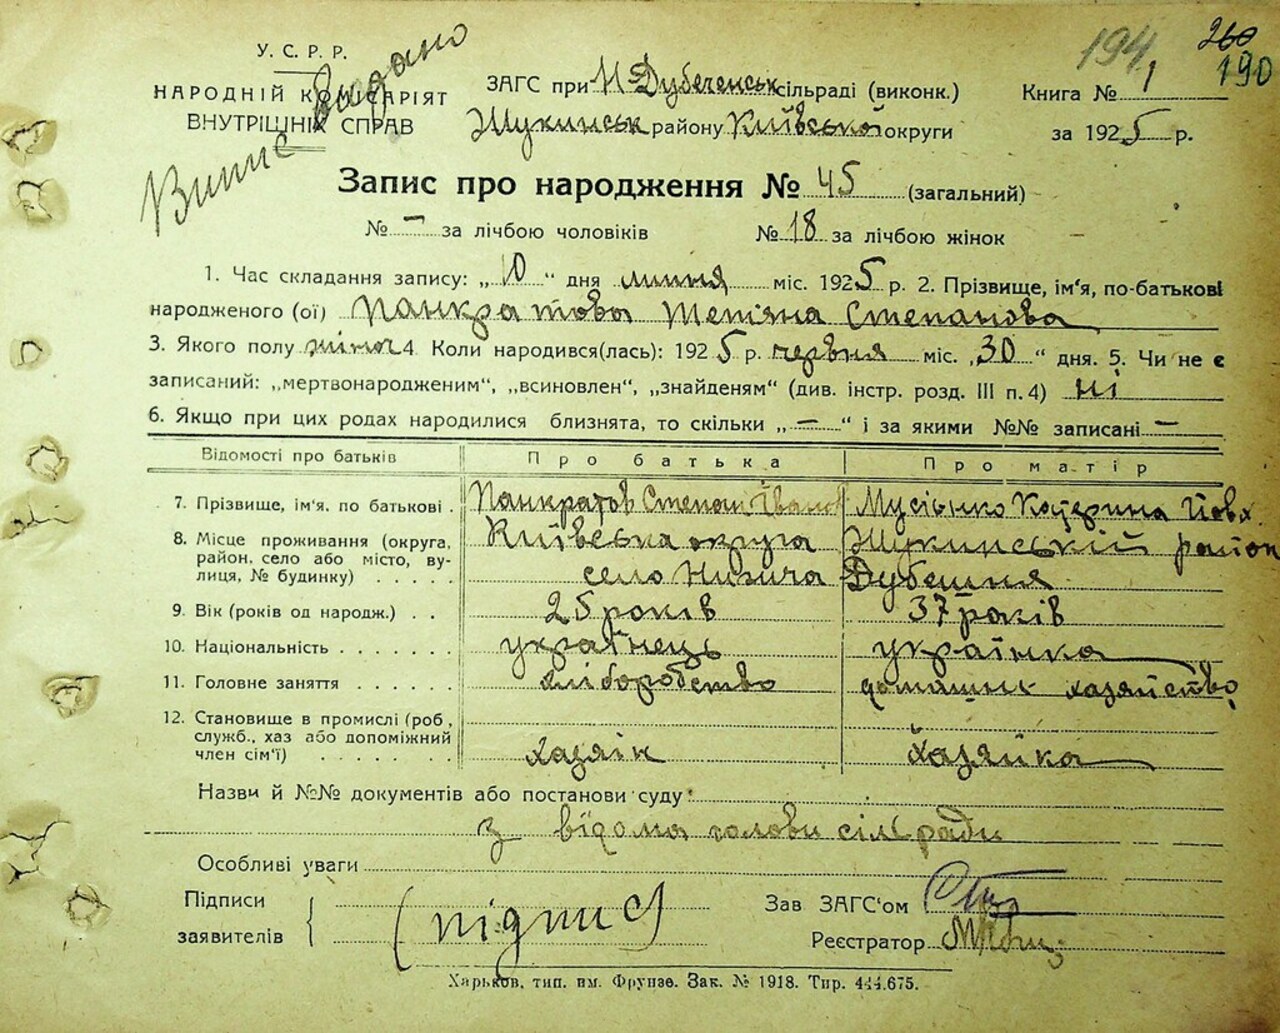 194 260
190
У. С. Р. Р.
НАРОДНІЙ КОМІСАРІЯТ
ВНУТРІШНІХ СПРАВ
Випис видано
ЗАГС при Н Дубеченськ сільраді (виконк.)
Жукинськ району Київської округи
Книга № 1
за 1925 р.
Запис про народження № 45 (загальний)
№ — за лічбою чоловіків № 18 за лічбою жінок
1. Час складання запису: „10“ дня липня міс. 1925 р. 2. Прізвище, ім'я, по-батькові
народженого (ої) Панкратова Тетяна Степанова
3. Якого полу жіноч 4. Коли народився(лась): 1925 р. червня міс. „30“ дня. 5. Чи не є
записаний: „мертвонародженим“, „всиновлен“, „знайденям“ (див. інстр. розд. III п. 4) ні
6. Якщо при цих родах народилися близнята, то скільки „—“ і за якими №№ записані —
Відомості про батьків Про батька Про матір
7. Прізвище, ім'я, по батькові . Панкратов Степан Іванов Мусієнко Катерина Йовх
8. Місце проживання (округа, район, село або місто, вулиця, № будинку) . . . . Київська округа Жукинській район
село Нижча Дубешня
9. Вік (років од народж.) . . 25 років 37 років
10. Національність . . . . . . . українець українка
11. Головне заняття . . . . . . хліборобство домашнє хазяйство
12. Становище в промислі (роб., служб., хаз або допоміжний член сім'ї) . . . . . . . хазяїн хазяйка
Назви й №№ документів або постанови суду:
з відома голови сільради
Особливі уваги
Підписи
заявителів
(підпис)
Зав ЗАГС'ом
Реєстратор
Харьков, тип. им. Фрунзе. Зак. № 1918. Тир. 444.675.